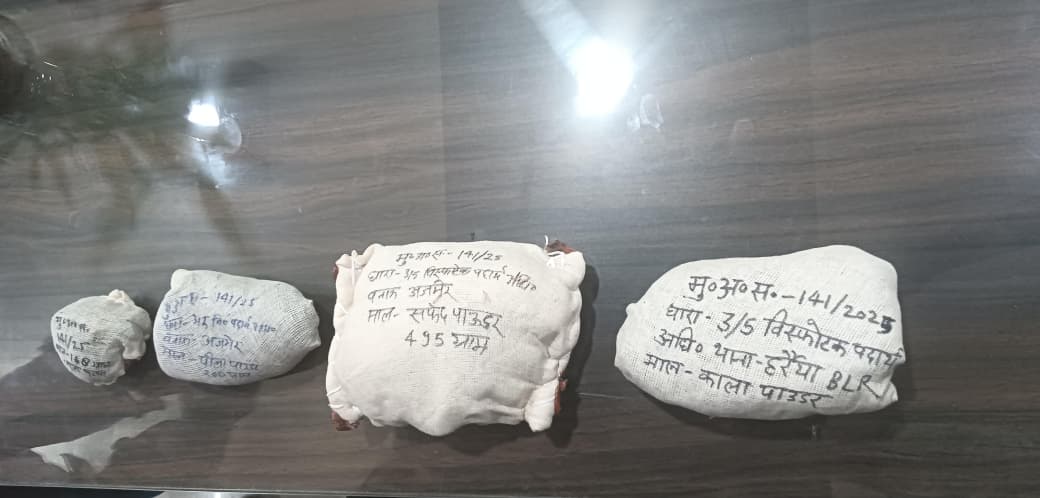 मु०अ०स०
141/25
मु०अ०स०- 141/25
बनाम अजमेर
माल- पीला पाउडर
मु०अ०स०- 141/25
धारा- 3/5 विस्फोटक पदार्थ अधि०
बनाम अजमेर
माल- सफेद पाऊडर
495 ग्राम
मु०अ०स०-141/2025
धारा - 3/5 विस्फोटक पदार्थ
अधि० थाना-हर्रैया BLR
माल- काला पाउडर